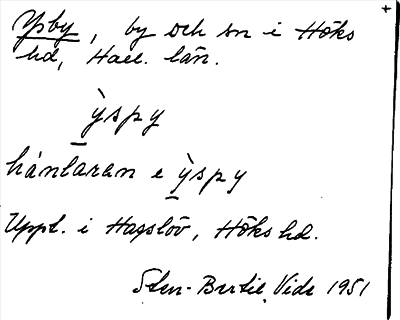 Ysby, by och sn i Höks
hd, Hall. län.
ỳspy
hánlaran e ỳspy
Uppt. i Hasslöv, Höks hd.
Sten-Bertil Vide 1951